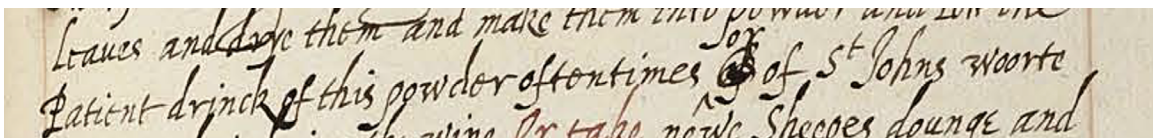 leaves and drye them and make them into powder and lett the
or
Patient drinck of this powder oftentimes of St Johns woorte
wine Or take newe Sheepes dounge and